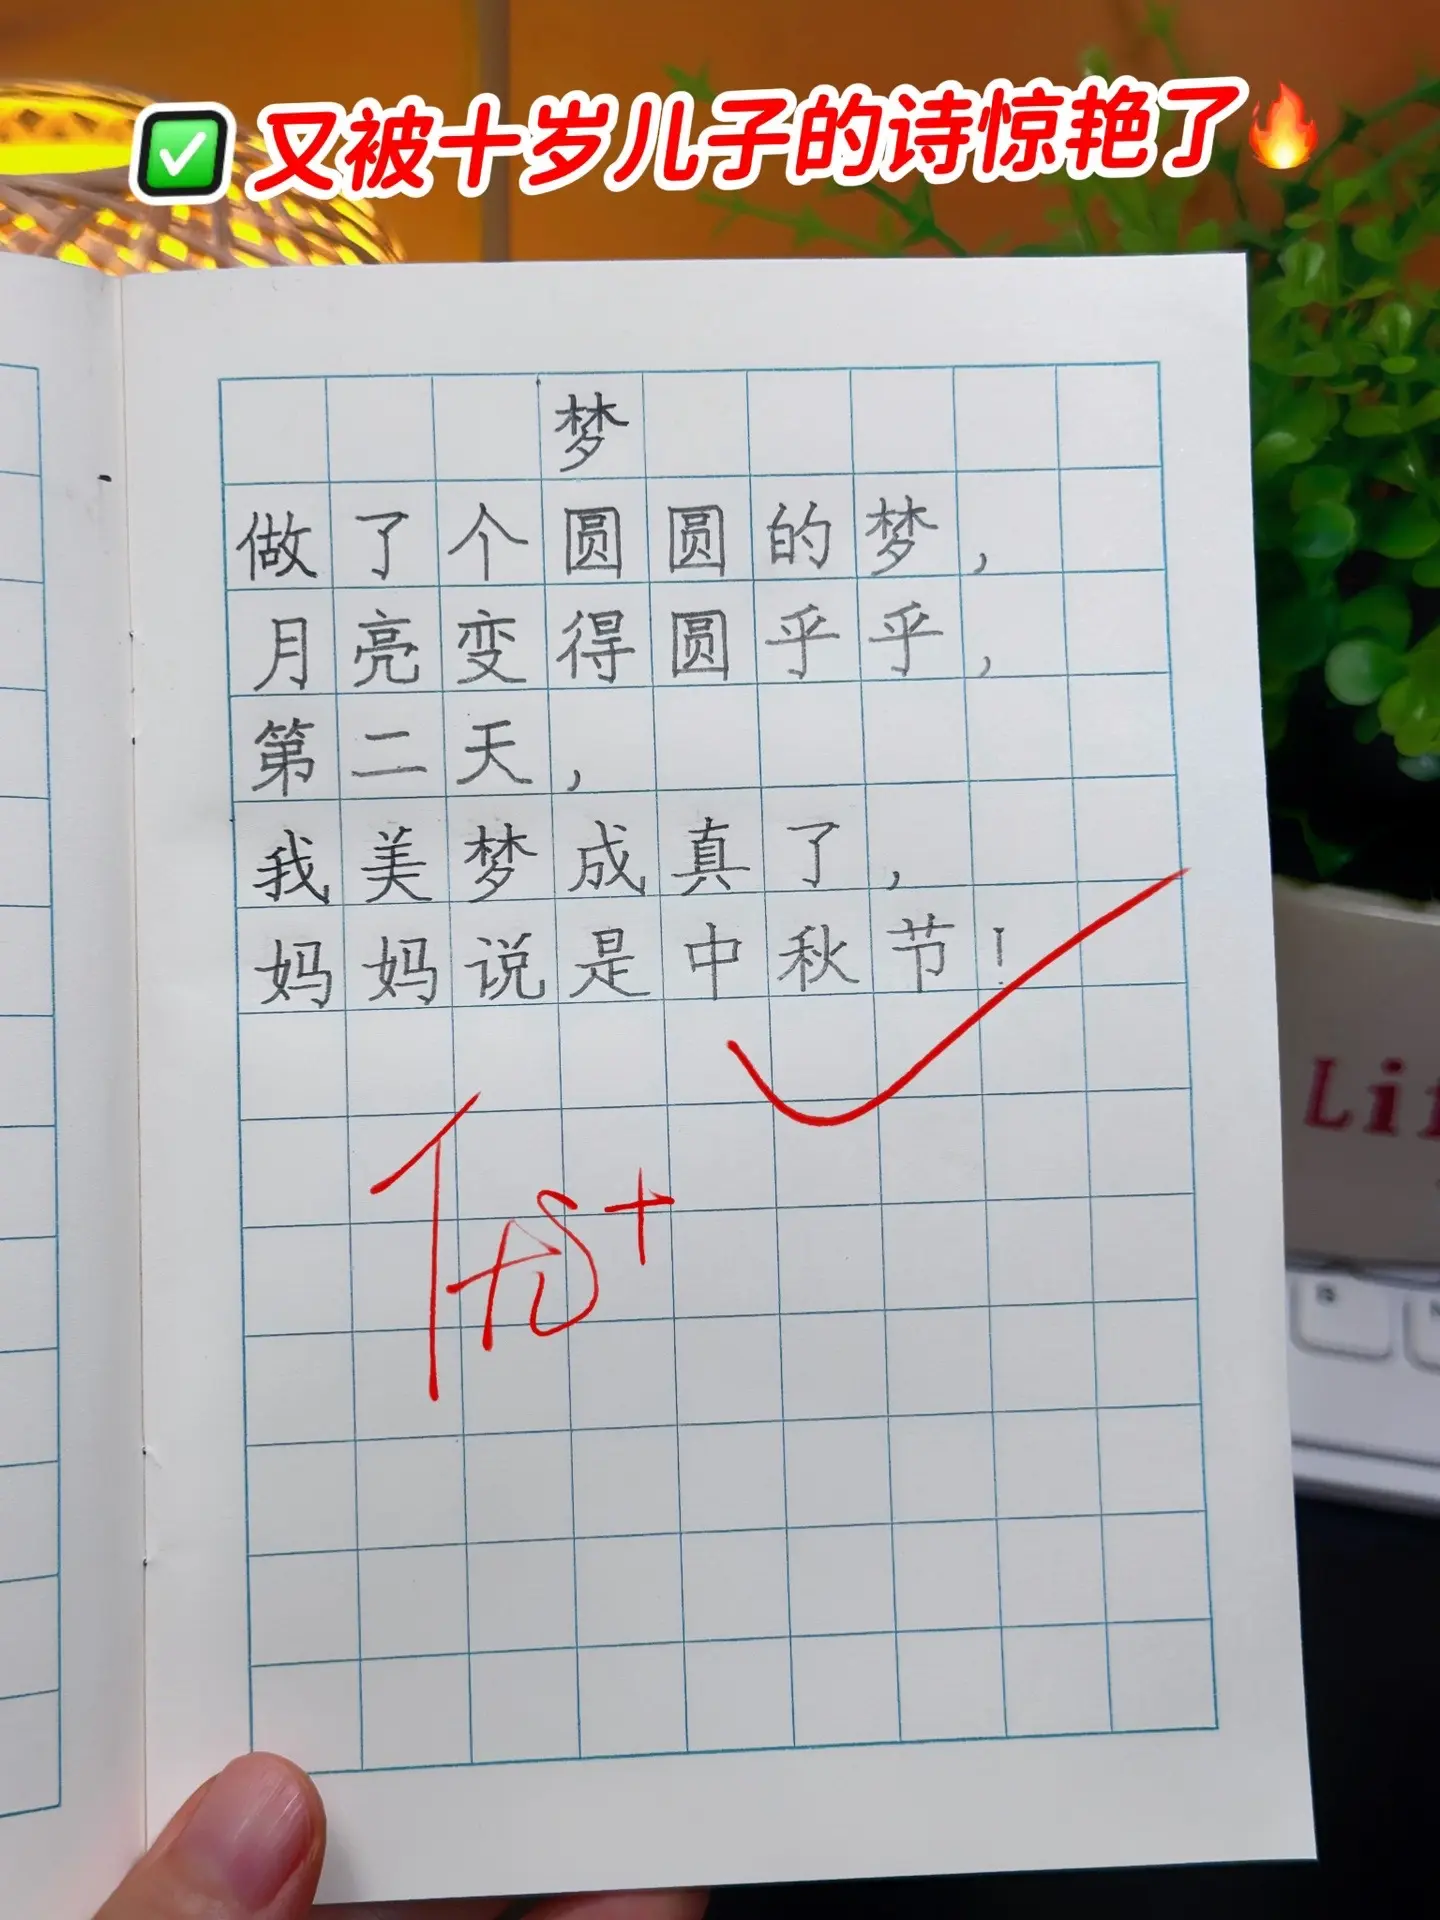 ✅ 又被十岁儿子的诗惊艳了🔥
梦
做了个圆圆的梦，
月亮变得圆乎乎，
第二天，
我美梦成真了，
妈妈说是中秋节！
优+
Lif
B